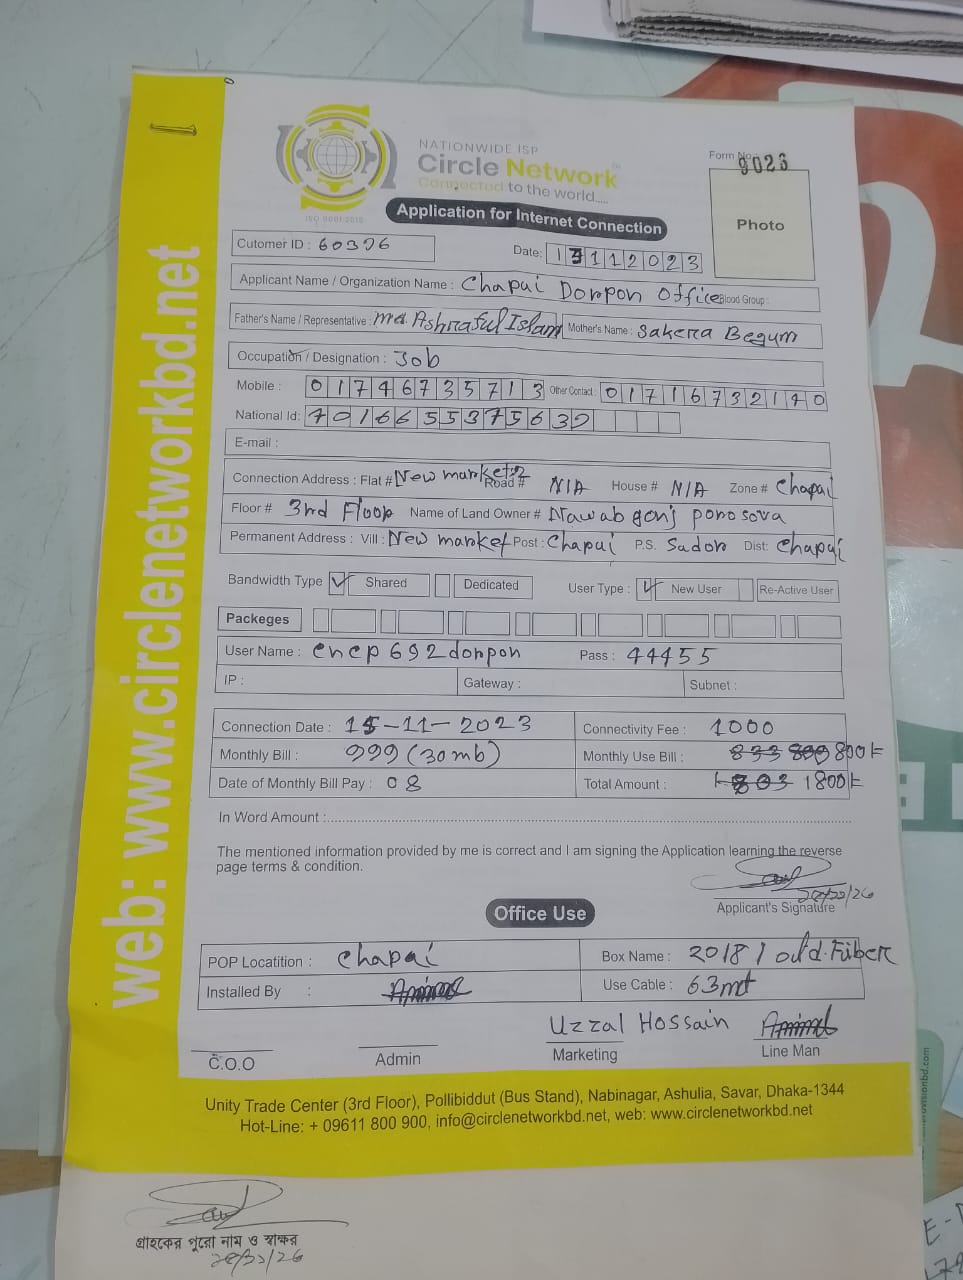 NATIONWIDE ISP
Circle Network
Connected to the world.....
ISO 9001:2015
Form No. 9023
Application for Internet Connection
Photo
Cutomer ID : 60376
Date: 13112023
Applicant Name / Organization Name : Chapai Dorpon Office Blood Group :
Father's Name / Representative : Md. Ashraful Islam Mother's Name : Sakera Begum
Occupation / Designation : Job
Mobile : 01746735713 Other Contact : 01716732140
National Id:
E-mail :
Connection Address : Flat # New market 2 Road # N/A House # N/A Zone # Chapai
Floor # 3rd Floor Name of Land Owner # Nawab gonj porosova
Permanent Address : Vill : New market Post : Chapai P.S. Sador Dist: Chapai
Bandwidth Type ✓ Shared Dedicated User Type : ✓ New User Re-Active User
Packeges
User Name : cncp692dorpon Pass : 44455
IP : Gateway : Subnet :
Connection Date : 15-11-2023 Connectivity Fee : 1000
Monthly Bill : 999 (30mb) Monthly Use Bill : 833 800 800৳
Date of Monthly Bill Pay : 08 Total Amount : 1803 1800৳
In Word Amount :
The mentioned information provided by me is correct and I am signing the Application learning the reverse
page terms & condition.
Applicant's Signature
Office Use
POP Locatition : Chapai Box Name : 2018 / old.Fiber
Installed By : Use Cable : 63mt
Uzzal Hossain
C.O.O Admin Marketing Line Man
Unity Trade Center (3rd Floor), Pollibiddut (Bus Stand), Nabinagar, Ashulia, Savar, Dhaka-1344
Hot-Line: + 09611 800 900, info@circlenetworkbd.net, web: www.circlenetworkbd.net
web: www.circlenetworkbd.net
গ্রাহকের পুরো নাম ও স্বাক্ষর